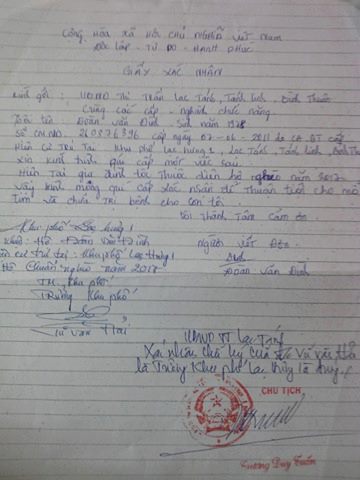 Cộng Hòa Xã Hội Chủ Nghĩa Việt Nam
Độc Lập - Tự Do - Hạnh Phúc
GIẤY XÁC NHẬN
Kính gởi : UBND Thị Trấn Lạc Tánh, Tánh Linh, Bình Thuận
Cùng các cấp nghành chức năng.
Tôi tên : Đoàn Văn Định Sinh năm 1978
Số CMND. 260876396 cấp ngày 07-06-2011 do CA BT cấp
Hiện Cư Trú Tại Khu phố Lạc Hưng 1, Lạc Tánh, Tánh Linh, Bình Thuận
xin kính trình quí cấp một việc sau.
Hiện Tại gia đình tôi Thuộc diện hộ nghèo năm 2017
Vậy kính mong quí cấp xác nhận để Thuận tiện cho mổ
Tim và chữa Trị bệnh cho con tôi.
Tôi Thành Tâm Cảm ơn
Khu phố Lạc Hưng 1
Hộ Đoàn Văn Định
cư trú tại khu phố Lạc Hưng 1
Hộ Chuẩn nghèo năm 2017
Người viết Đơn
Định
Đoàn Văn Định
TM. Khu phố
Trưởng Khu phố
Từ Văn Hải
UBND TT Lạc Tánh
Xác nhận chữ ký của Từ Văn Hải
là Trưởng Khu phố Lạc Hưng là đúng.
CHỦ TỊCH
Trương Duy Tuấn